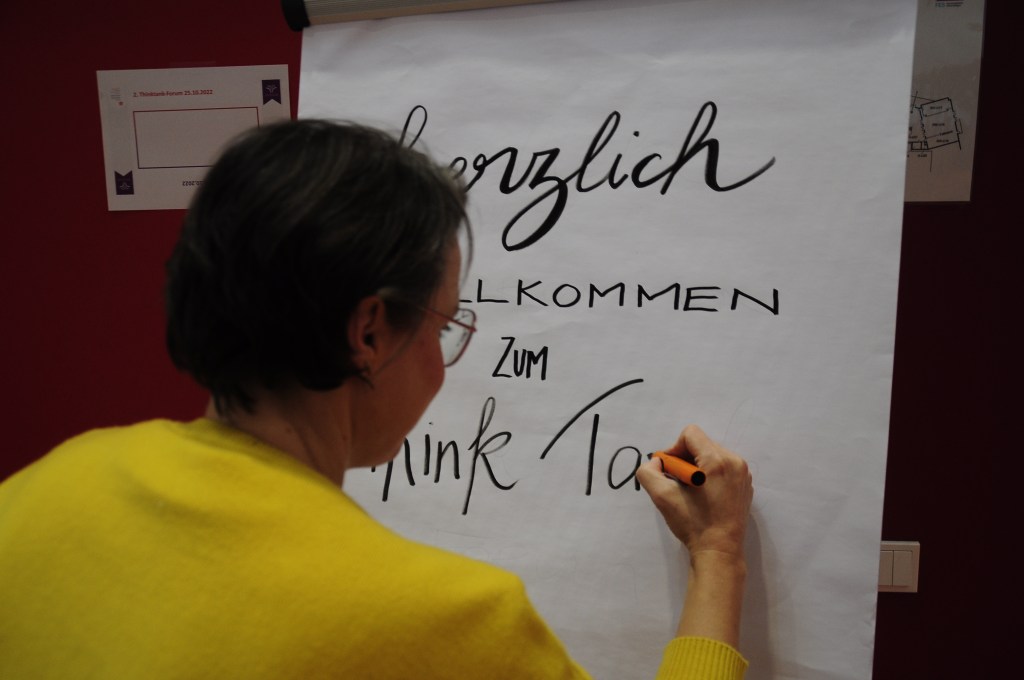 2. Thinktank-Forum 25.10.2022
herzlich
LLKOMMEN
ZUM
hink Ta